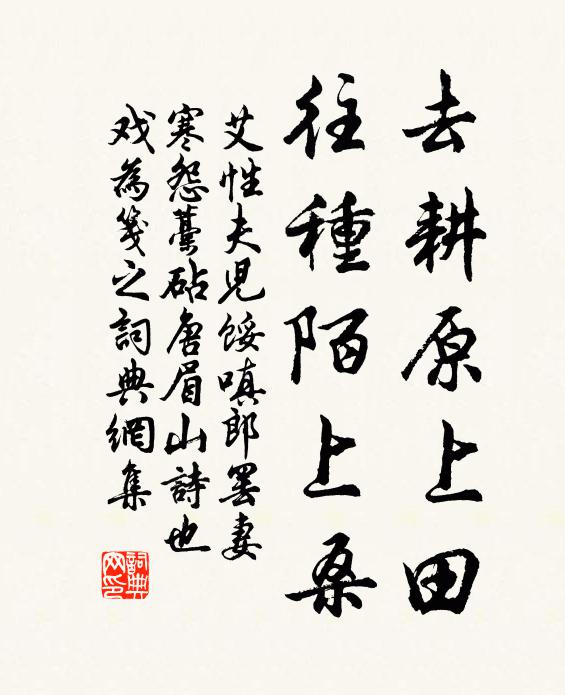 去耕原上田
往種陌上桑
艾性夫児餒嗔郎罢妻
寒怨藁砧唐眉山詩也
戏為箋之詞典網集
詞典網印